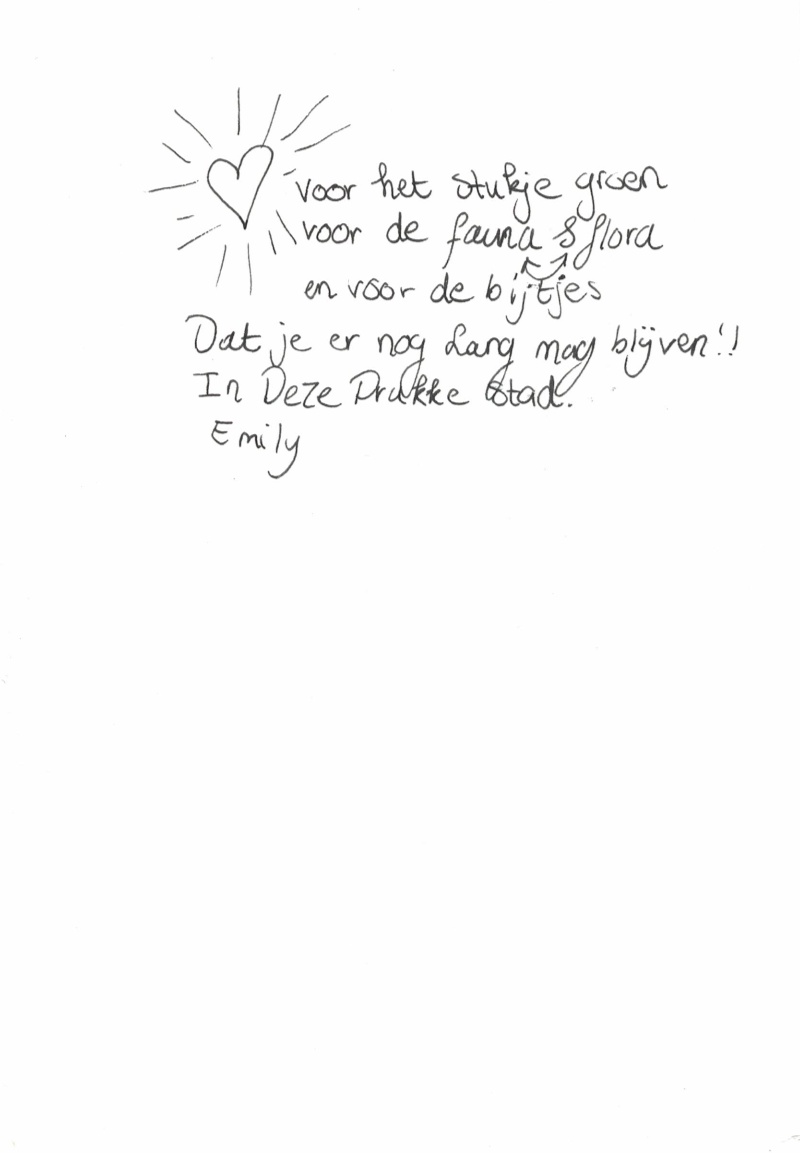 voor het stukje groen
voor de fauna & flora
en voor de bijtjes
Dat je er nog Lang mag blijven!!
In Deze Drukke Stad.
Emily